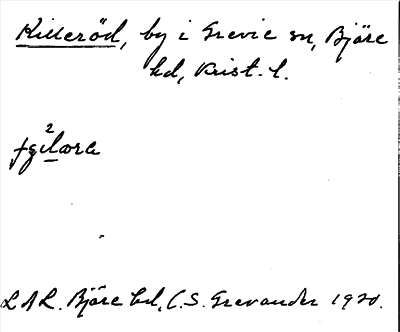 Killeröd, by i Grevie sn, Bjäre
hd, Krist. l.
LAL. Bjäre hd, C.S. Grevander 1920.